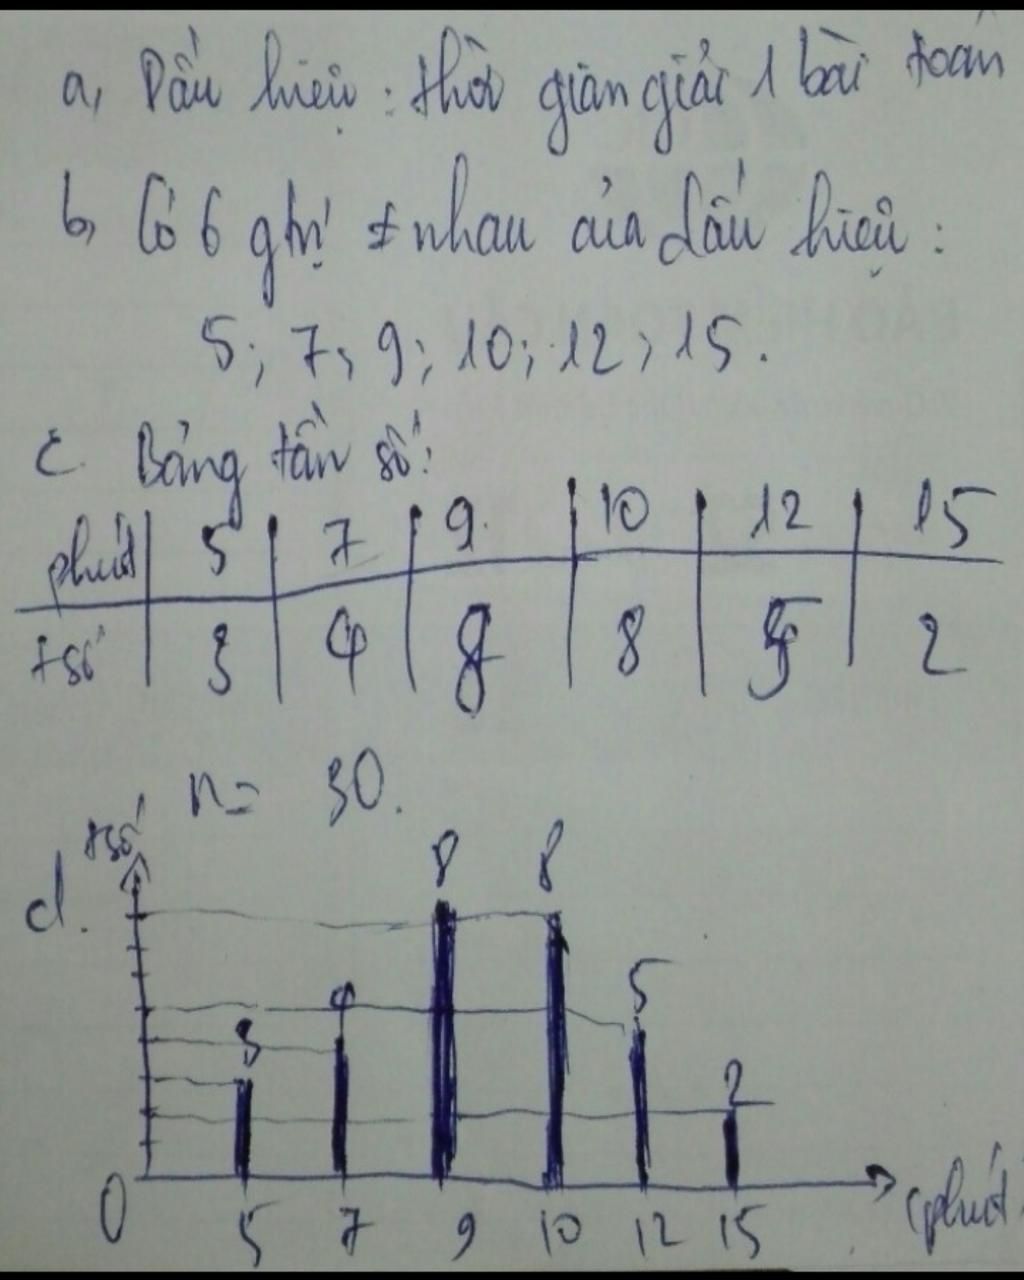 a, Dấu hiệu : thời gian giải 1 bài toán
b, Có 6 gtrị ≠ nhau của dấu hiệu :
5; 7; 9; 10; 12; 15.
c. Bảng tần số:
phút 5 7 9 10 12 15
tsố 3 4 8 8 5 2
n = 30.
tsố
d.
8 8
5
4
3
2
0 5 7 9 10 12 15 (phút)